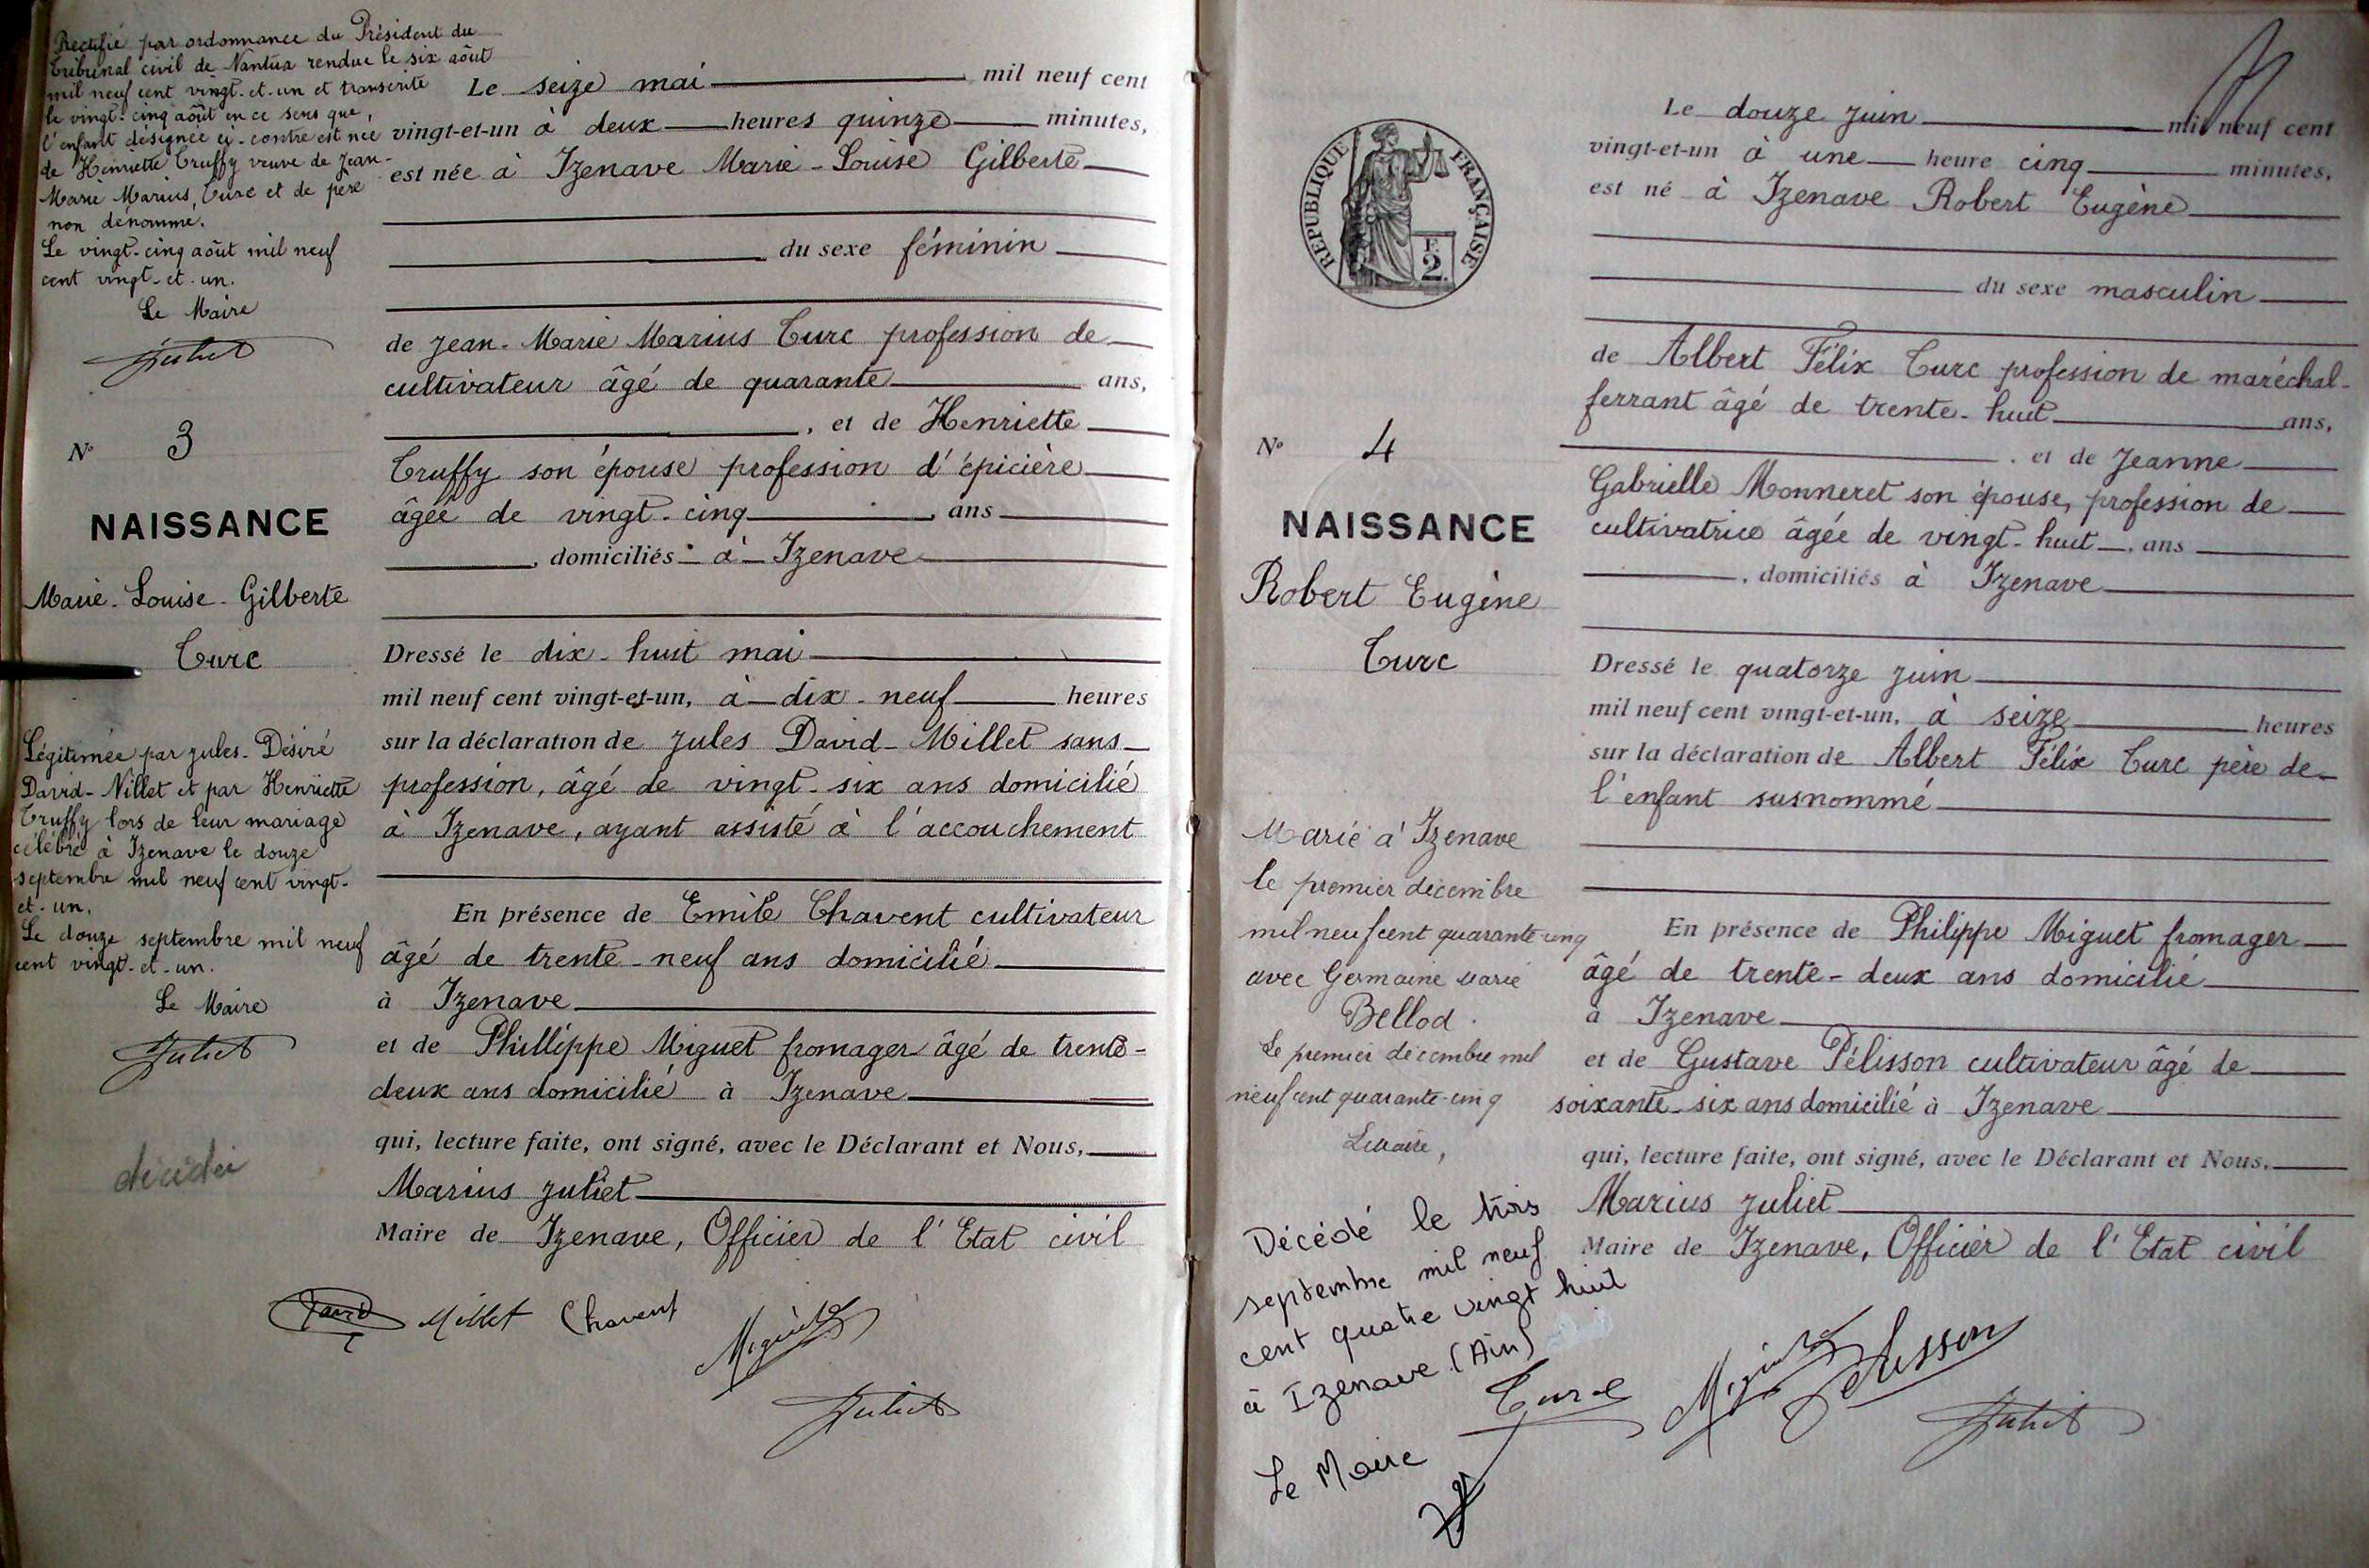 Rectifié par ordonnance du Président du
Tribunal civil de Nantua rendue le six août
mil neuf cent vingt-et-un et transcrite
le vingt-cinq août en ce sens que,
l'enfant désignée ci-contre est née
de Henriette Truffy veuve de Jean-
Marie Marius Turc et de père
non dénommé.
Le vingt-cinq août mil neuf
cent vingt-et-un.
Le Maire
Juliet
N° 3
NAISSANCE
Marie-Louise-Gilberte
Turc
Légitimée par Jules-Désiré
David-Nillet et par Henriette
Truffy lors de leur mariage
célébré à Izenave le douze
septembre mil neuf cent vingt-
et-un.
Le douze septembre mil neuf
cent vingt-et-un.
Le Maire
Juliet
Le seize mai mil neuf cent
vingt-et-un à deux heures quinze minutes,
est née à Izenave Marie-Louise Gilberte
du sexe féminin
de Jean-Marie Marius Turc profession de
cultivateur âgé de quarante ans,
, et de Henriette
Truffy son épouse profession d'épicière
âgée de vingt-cinq ans
, domiciliés à Izenave
Dressé le dix-huit mai
mil neuf cent vingt-et-un, à dix-neuf heures
sur la déclaration de Jules David-Millet sans
profession, âgé de vingt-six ans domicilié
à Izenave, ayant assisté à l'accouchement
En présence de Emile Chavent cultivateur
âgé de trente-neuf ans domicilié
à Izenave
et de Phillippe Miguet fromager âgé de trente-
deux ans domicilié à Izenave
qui, lecture faite, ont signé, avec le Déclarant et Nous,
Marius Juliet
Maire de Izenave, Officier de l'Etat civil
David Millet Chavent
Miguet
Juliet
RÉPUBLIQUE FRANÇAISE
F.
2
N° 4
NAISSANCE
Robert Eugène
Turc
Marié à Izenave
le premier décembre
mil neuf cent quarante-cinq
avec Germaine Marie
Bellod.
Le premier décembre mil
neuf cent quarante-cinq
Le Maire,
Décédé le trois
septembre mil neuf
cent quatre vingt huit
à Izenave (Ain)
Le Maire
Le douze juin mil neuf cent
vingt-et-un à une heure cinq minutes,
est né à Izenave Robert Eugène
du sexe masculin
de Albert Félix Turc profession de maréchal-
ferrant âgé de trente-huit ans,
, et de Jeanne
Gabrielle Monneret son épouse, profession de
cultivatrice âgée de vingt-huit, ans
, domiciliés à Izenave
Dressé le quatorze juin
mil neuf cent vingt-et-un, à seize heures
sur la déclaration de Albert Félix Turc père de
l'enfant susnommé
En présence de Philippe Miguet fromager
âgé de trente-deux ans domicilié
à Izenave
et de Gustave Pélisson cultivateur âgé de
soixante-six ans domicilié à Izenave
qui, lecture faite, ont signé, avec le Déclarant et Nous,
Marius Juliet
Maire de Izenave, Officier de l'Etat civil
Turc Miguet Pelisson
Juliet